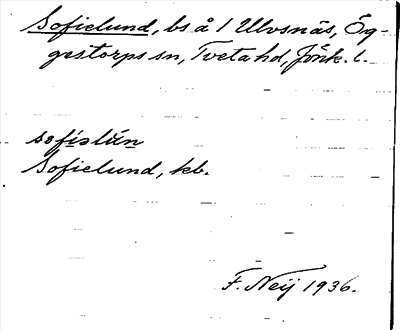 Sofielund, bs å 1 Ulvsnäs, Ög-
gestorps sn, Tveta hd, Jönk. l.
sofislün
Sofielund, kb.
F. Neij 1936.